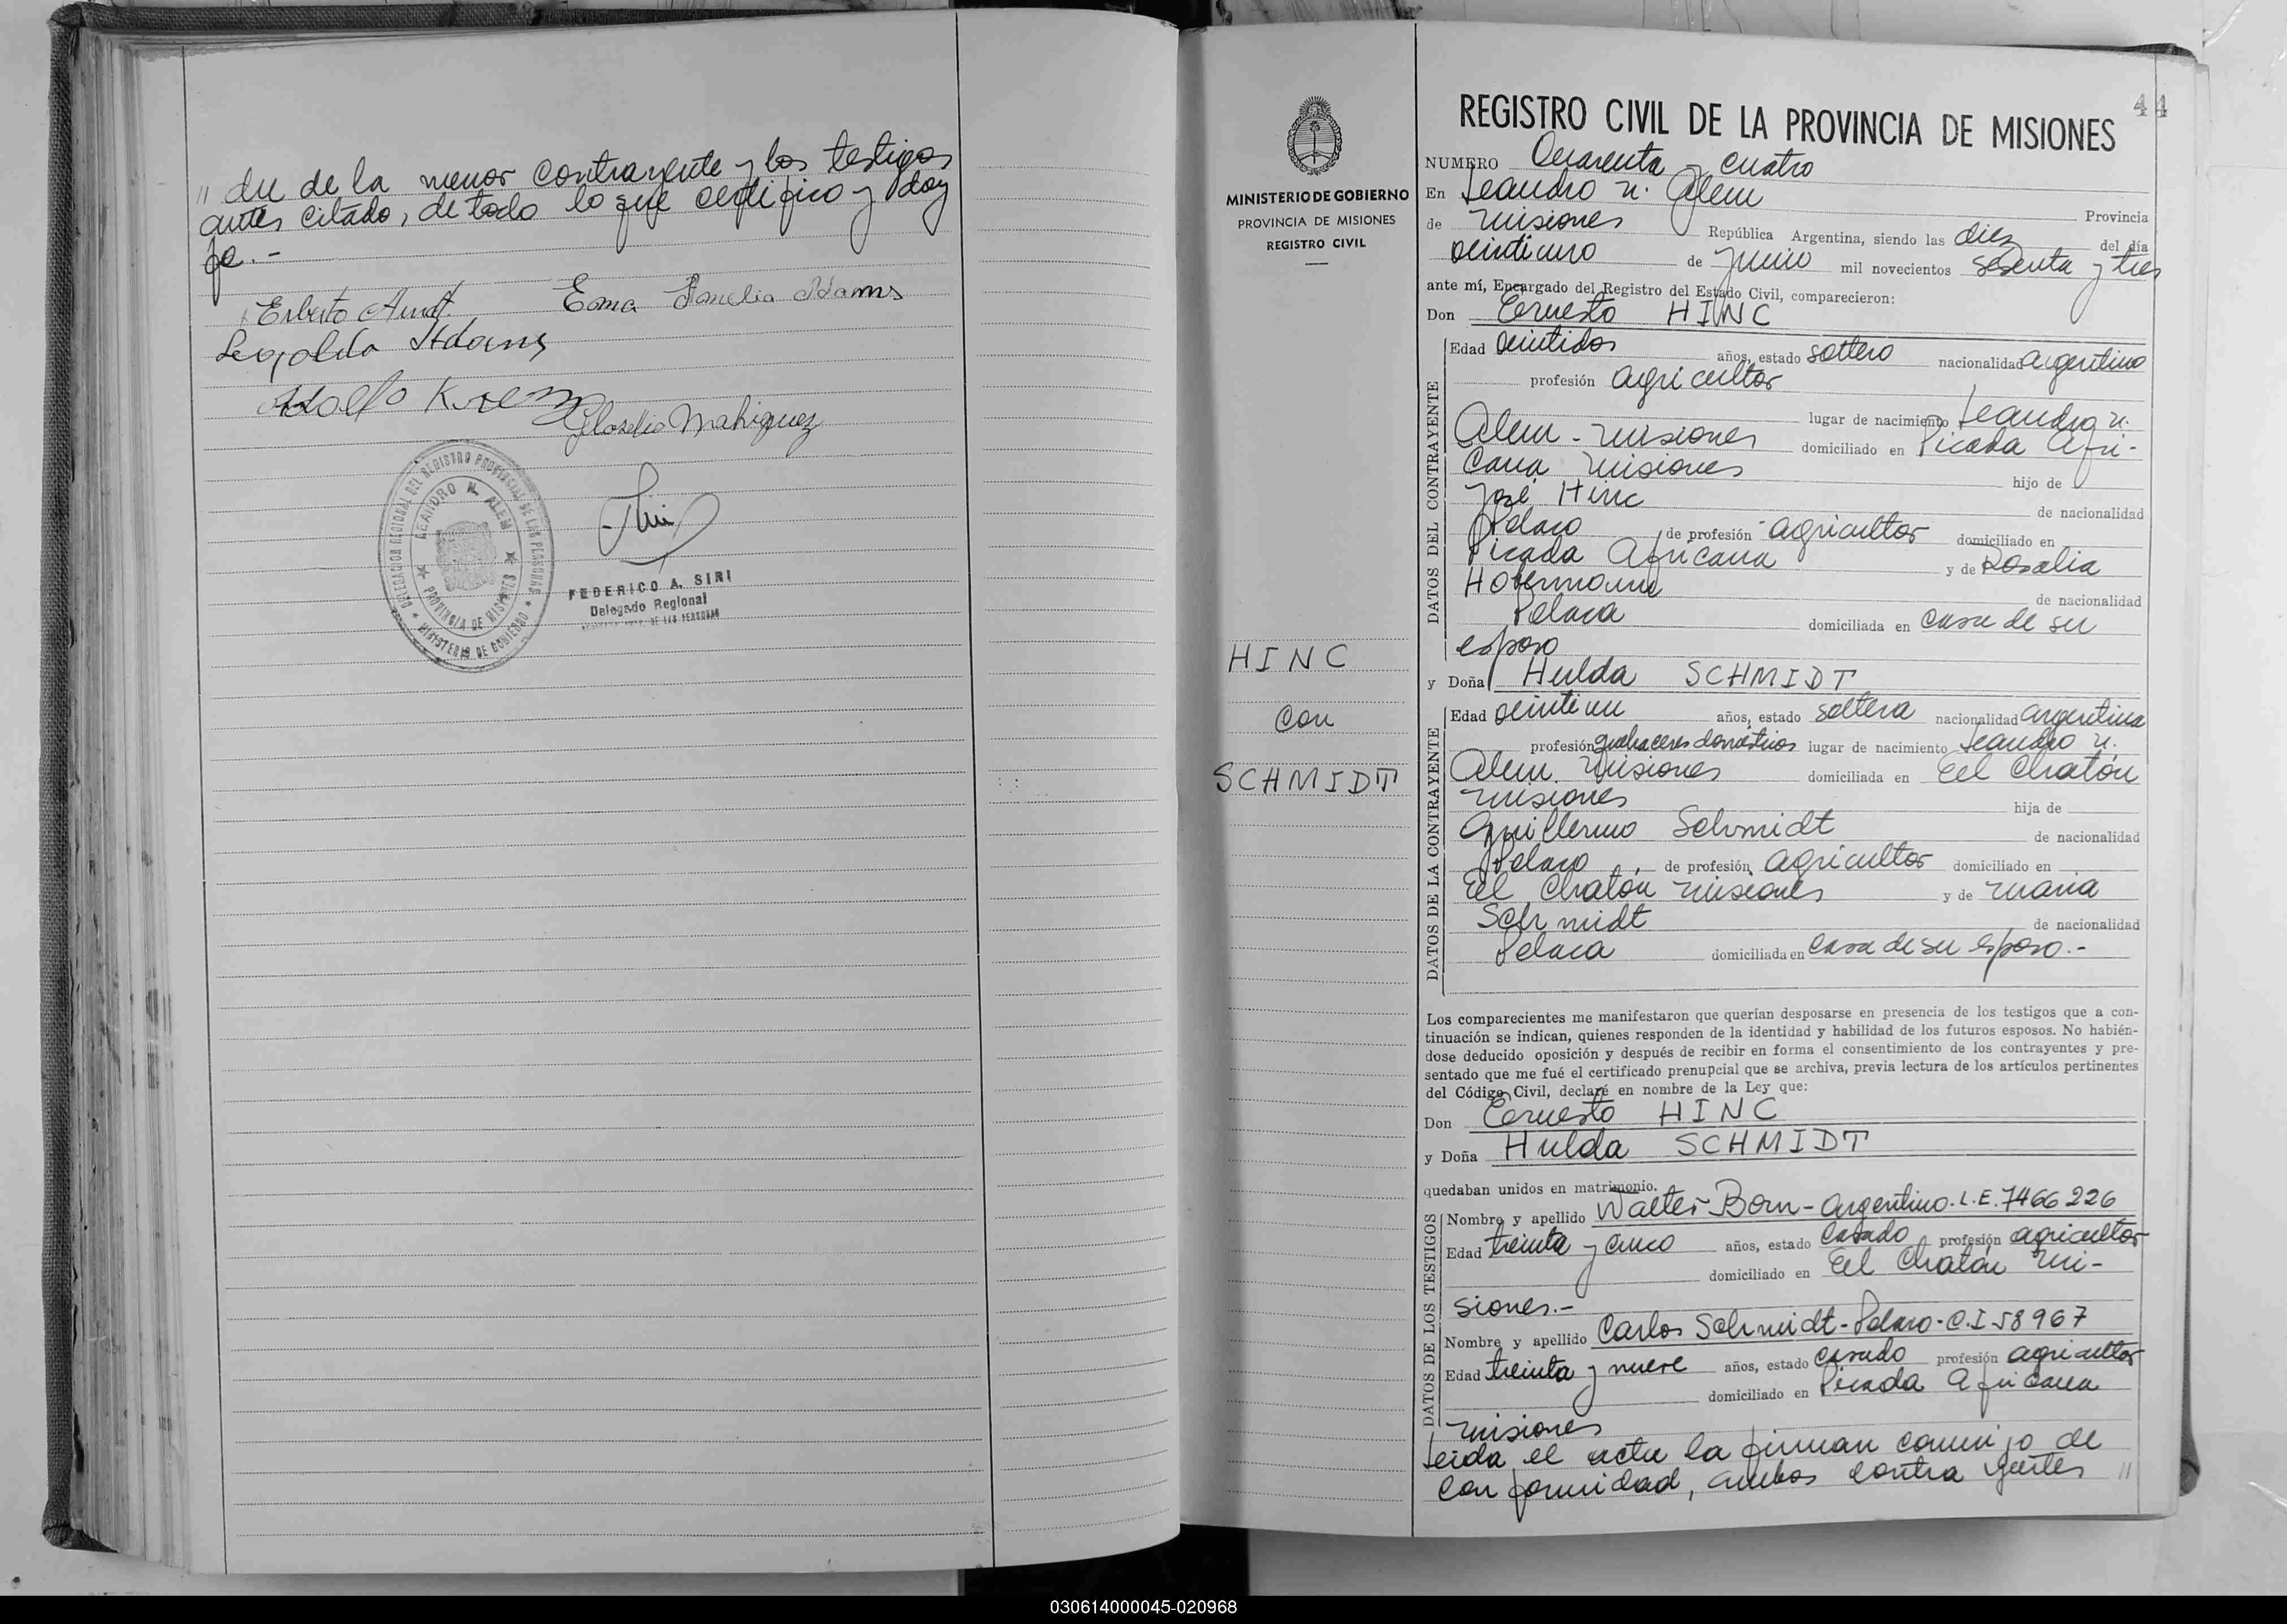 " dre de la menor contrayente y los testigos
antes citado, de todo lo que certifico y doy
fe.-
Erberto Arndt.
Ema Amelia Adams
Leopoldo Adams
Adolfo
DELEGACION REGIONAL DEL REGISTRO PROVINCIAL DE LAS PERSONAS
LEANDRO N. ALEM
PROVINCIA DE MISIONES
MINISTERIO DE GOBIERNO
FEDERICO A. SIRI
Delegado Regional
DE LAS PERSONAS
MINISTERIO DE GOBIERNO
PROVINCIA DE MISIONES
REGISTRO CIVIL
HINC
con
SCHMIDT
44
REGISTRO CIVIL DE LA PROVINCIA DE MISIONES
NUMERO Cuarenta y cuatro
En Leandro N. Alem Provincia
de Misiones República Argentina, siendo las diez del día
veintiuno de Junio mil novecientos sesenta y tres
ante mí, Encargado del Registro del Estado Civil, comparecieron:
Don Ernesto HINC
DATOS DEL CONTRAYENTE
Edad veintidos años, estado soltero nacionalidad argentino
profesión agricultor
lugar de nacimiento Leandro N.
Alem - Misiones domiciliado en Picada Afri-
cana Misiones hijo de
José Hinc de nacionalidad
Polaco de profesión agricultor domiciliado en
Picada Africana y de Rosalia
Hofermann de nacionalidad
Polaca domiciliada en casa de su
esposo
y Doña Hulda SCHMIDT
DATOS DE LA CONTRAYENTE
Edad veintiun años, estado soltera nacionalidad argentina
profesión quehaceres domésticos lugar de nacimiento Leandro N.
Alem. Misiones domiciliada en El Chatón
Misiones hija de
Guillermo Schmidt de nacionalidad
Polaco, de profesión agricultor domiciliado en
El Chatón Misiones y de Maria
Schmidt de nacionalidad
Polaca domiciliada en casa de su esposo.-
Los comparecientes me manifestaron que querían desposarse en presencia de los testigos que a con-
tinuación se indican, quienes responden de la identidad y habilidad de los futuros esposos. No habién-
dose deducido oposición y después de recibir en forma el consentimiento de los contrayentes y pre-
sentado que me fué el certificado prenupcial que se archiva, previa lectura de los artículos pertinentes
del Código Civil, declaré en nombre de la Ley que:
Don Ernesto HINC
y Doña Hulda SCHMIDT
quedaban unidos en matrimonio.
DATOS DE LOS TESTIGOS
Nombre y apellido Walter Born - Argentino. L.E. 7466226
Edad treinta y cinco años, estado casado profesión agricultor
domiciliado en El Chatón Mi-
siones.-
Nombre y apellido Carlos Schmidt - Polaco - C.I 58967
Edad treinta y nueve años, estado casado profesión agricultor
domiciliado en Picada Africana
Misiones
Leida el acta la firman conmigo de
conformidad, ambos contrayentes "
030614000045-020968